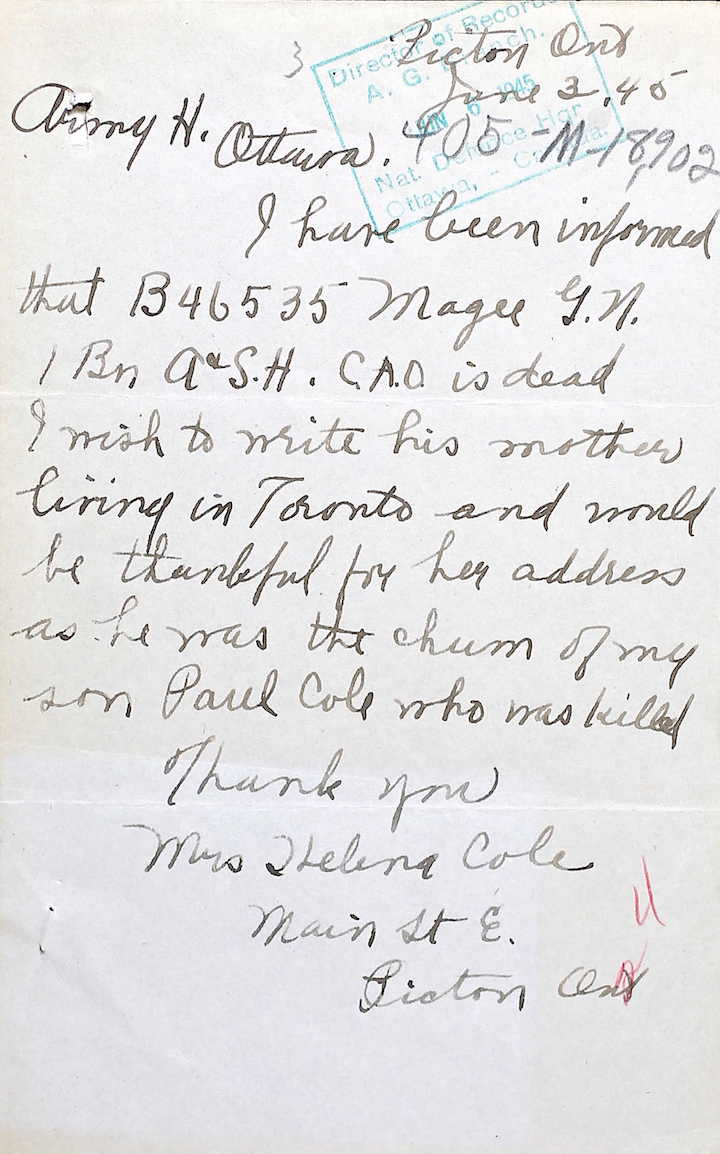 3 Picton Ont
Director of Records
A. G. Branch.
June 3.45
JUN 6 1945
Army H. Ottawa. 405-M-18,902
Nat. Defence Hqr
Ottawa, - Canada.
I have been informed
that B46535 Magee G.N.
1 Bn A&S.H. C.A.O. is dead
I wish to write his mother
living in Toronto and would
be thankful for her address
as he was the chum of my
son Paul Cole who was killed
Thank you
Mrs Helena Cole
Main St E.
Picton Ont